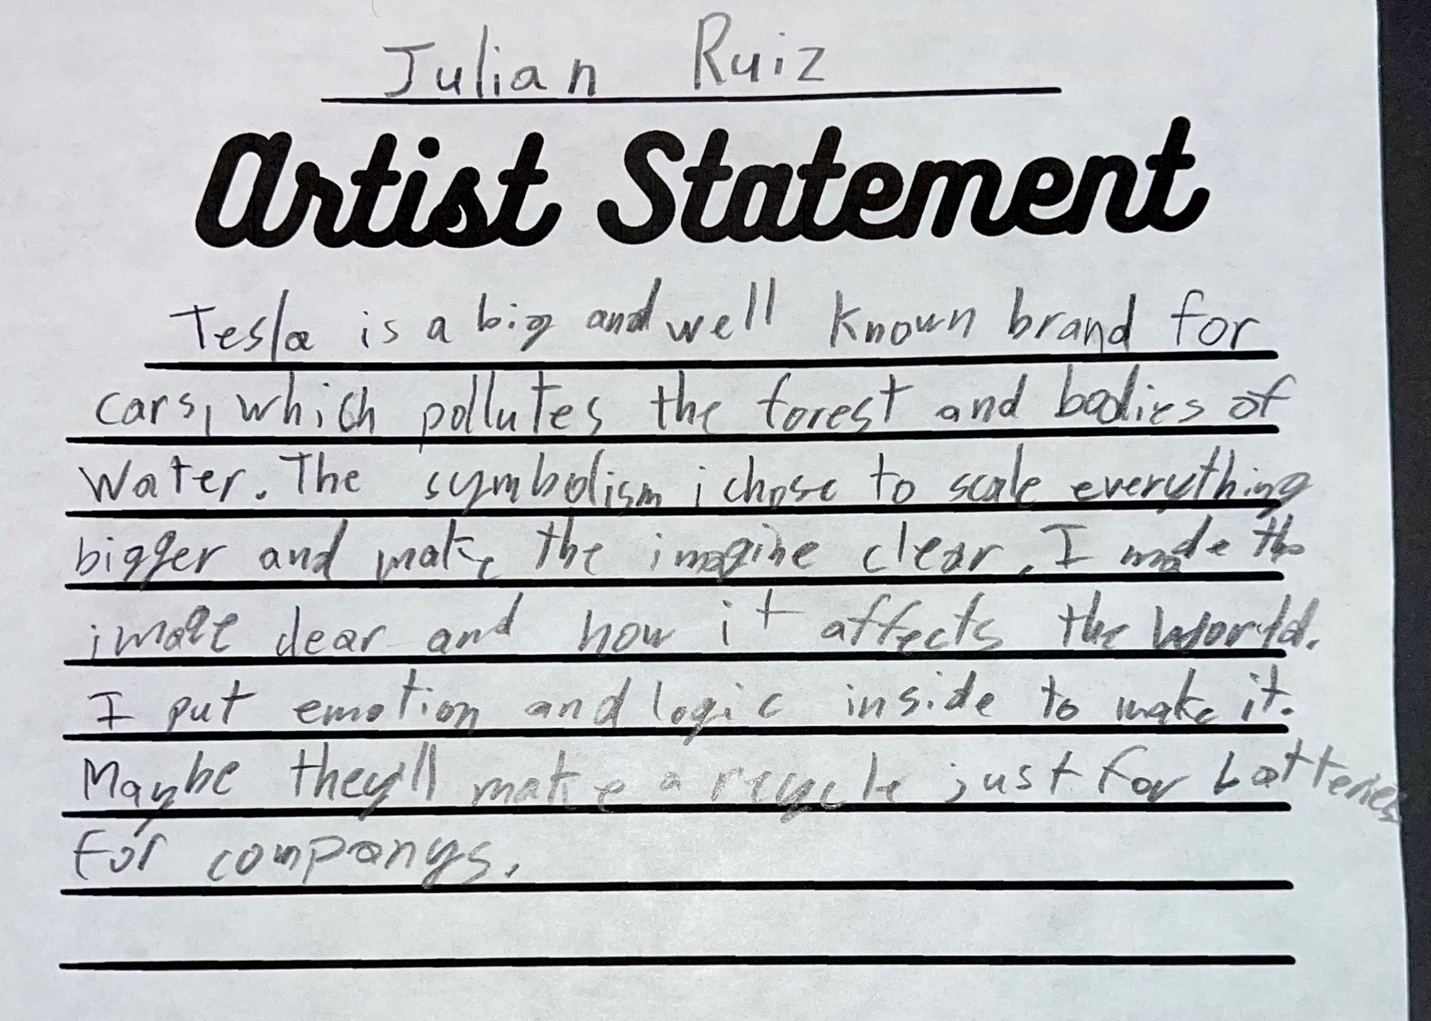 Julian Ruiz
Artist Statement
Tesla is a big and well known brand for
cars, which pollutes the forest and bodies of
Water. The symbolism i chose to scale everything
bigger and make the imagine clear. I made the
image clear and how it affects the world.
I put emotion and logic inside to make it.
Maybe they'll make a recycle just for batteries
for companys.